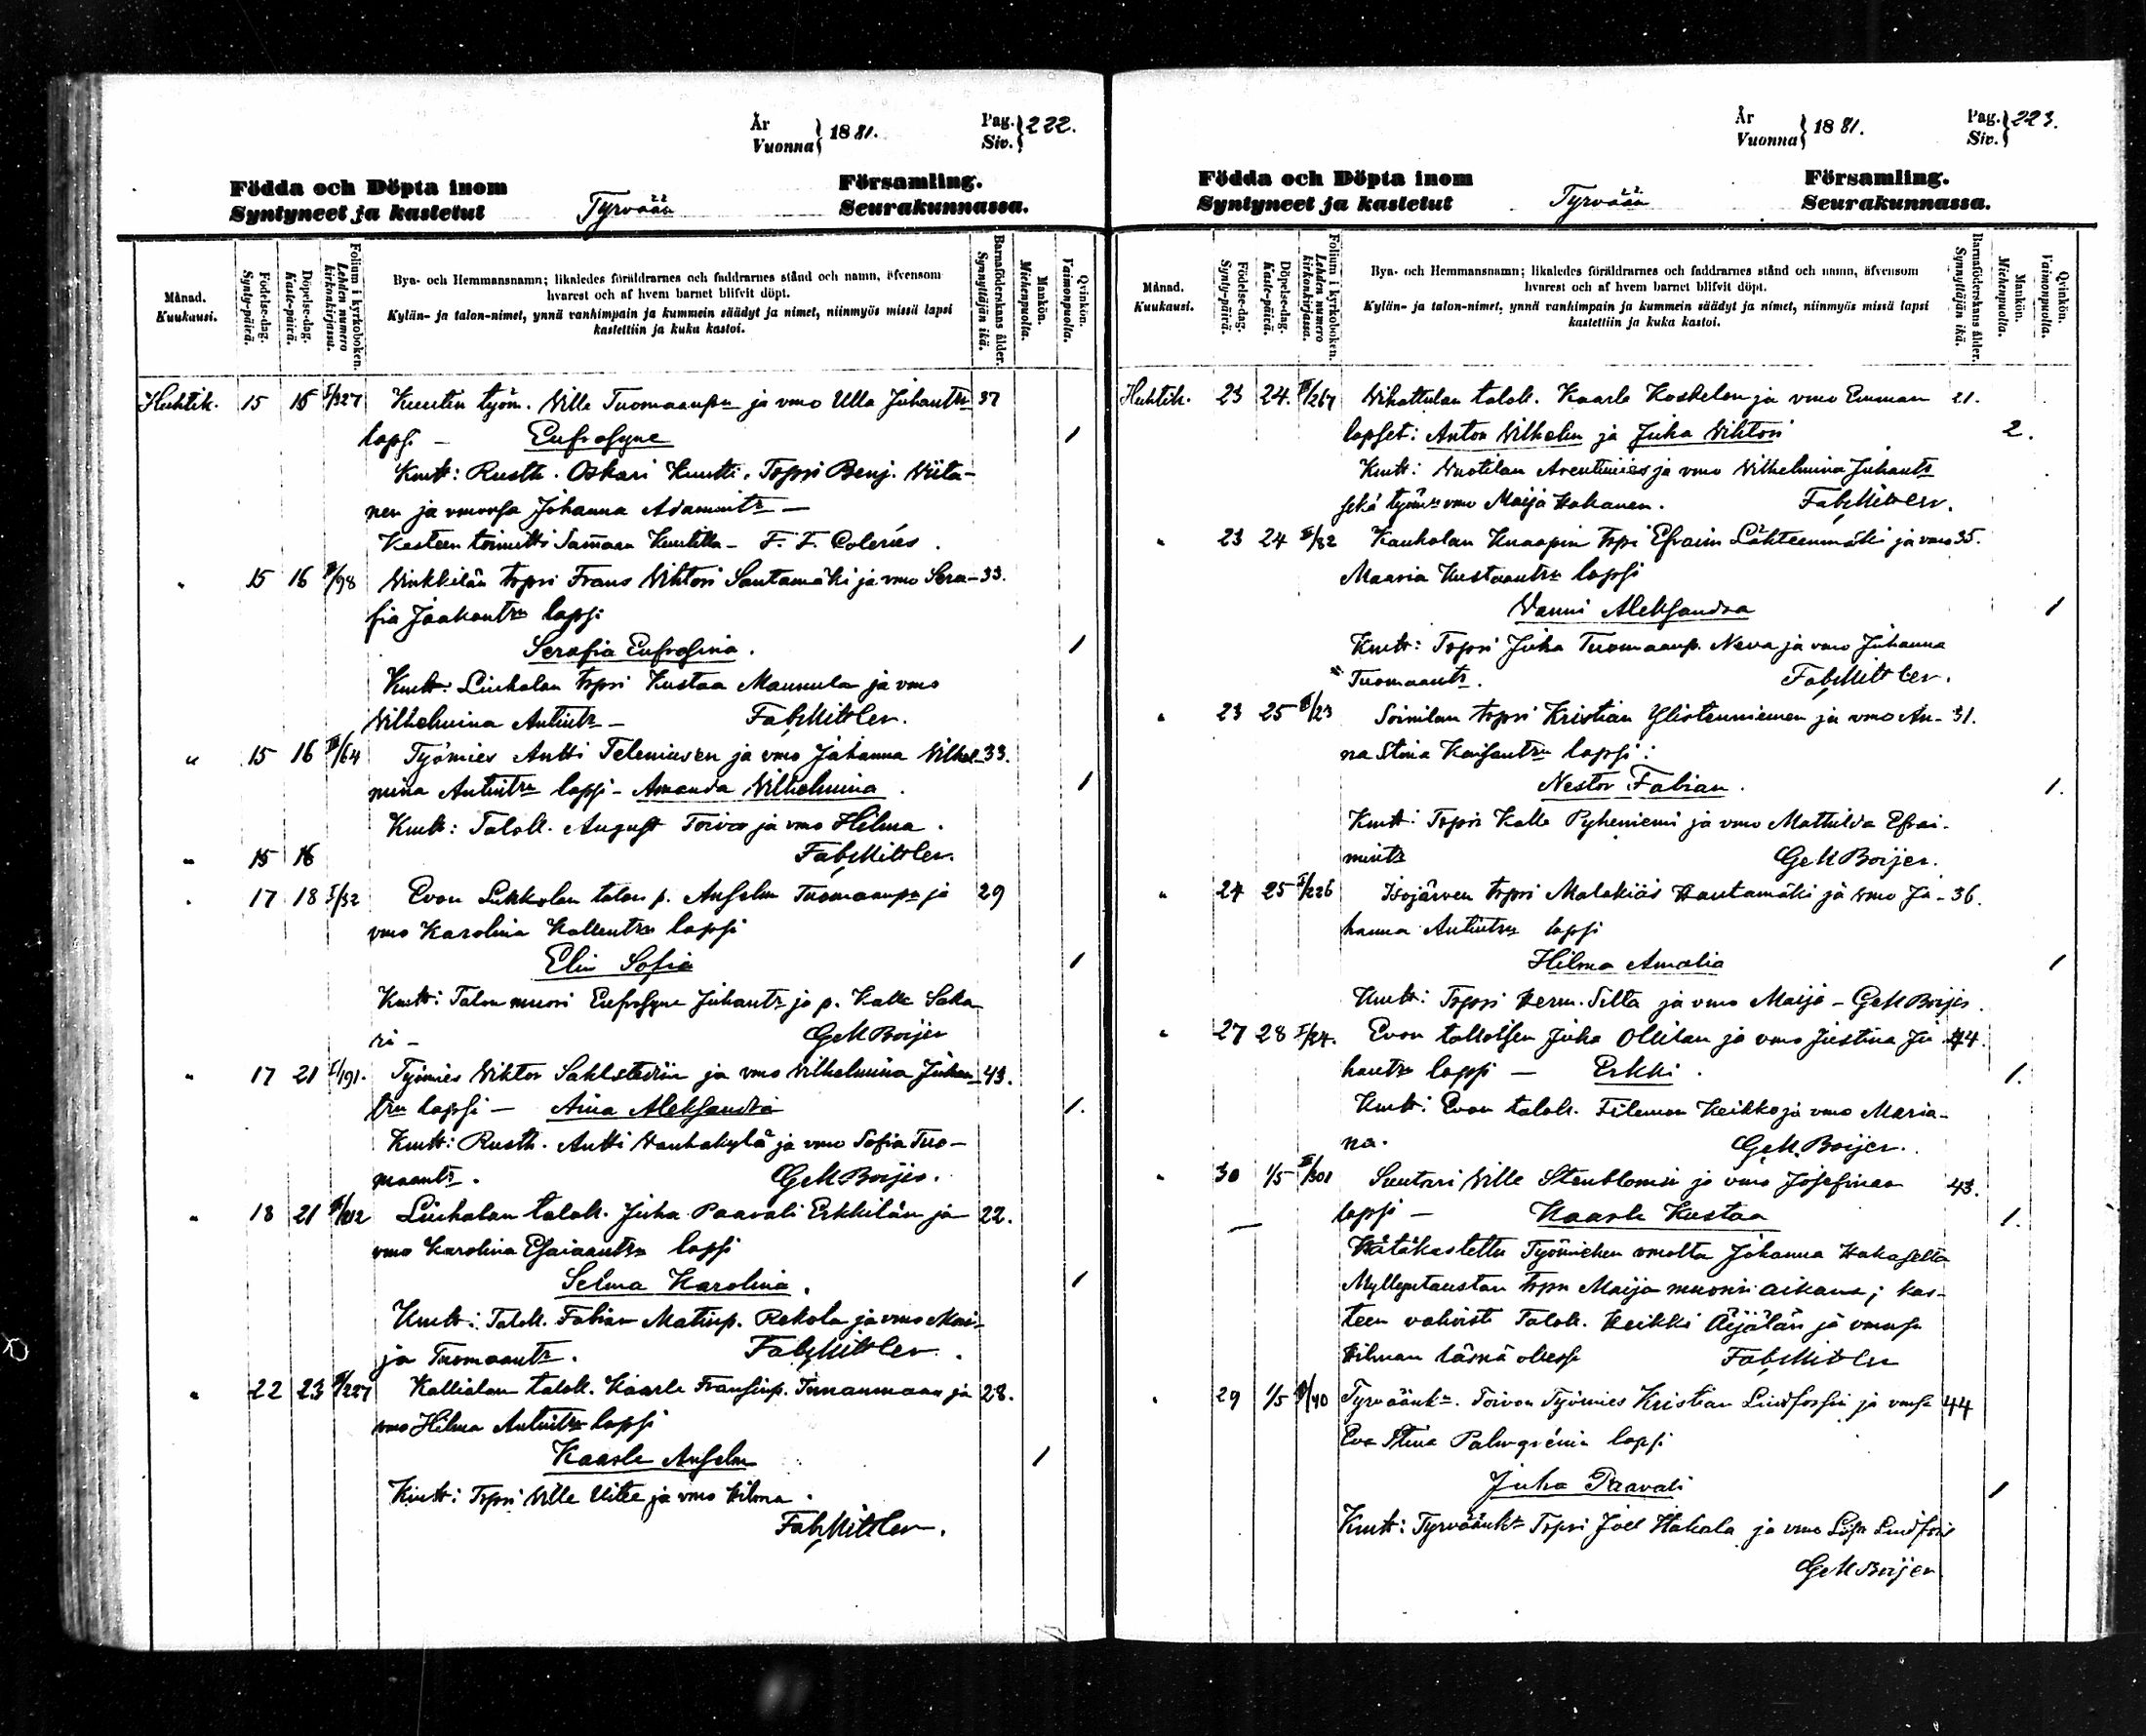 År
Vuonna } 1881.
Pag.
Siv. } 222.
Födda och Döpta inom
Syntyneet ja kastetut
Tyrvään
Församling.
Seurakunnassa.
Månad.
Kuukausi.
Födelse-dag.
Synty-päivä.
Döpelse-dag.
Kaste-päivä.
Folium i kyrkoboken.
Lehden numero
kirkonkirjassa.
Bya- och Hemmansnamn; likaledes föräldrarnes och faddrarnes stånd och namn, äfvensom
hvarest och af hvem barnet blifvit döpt.
Kylän- ja talon-nimet, ynnä vanhimpain ja kummein säädyt ja nimet, niinmyös missä lapsi
kastettiin ja kuka kastoi.
Barnaföderskans ålder.
Synnyttäjän ikä.
Mankön.
Miehenpuolta.
Qvinkön.
Vaimonpuolta.
Huhtik. 15 16 I/327 Kuutin työm. Wille Tuomaanpn ja vmo Ulla Juhantr 37
lapsi – Eufrosyne 1
Kmtt: Rusth. Oskari Kuutti, Torpri Benj. Wiita-
nen ja vmonsa Johanna Adamintr –
Kasteen toimitti Samaan Kuutilla – F. F. Colerus.
" 15 16 /98 Winkkilän torpri Frans Wihtori Santamäki ja vmo Sera- 33.
fia Jaakontrn lapsi
Serafia Eufrosina. 1
Kmtt: Liuhalan torpri Kustaa Mannula ja vmo
Wilhelmina Antintr – Fab. Mittler.
" 15 16 /64 Työmies Antti Teleniusen ja vmo Johanna Wilhel- 33.
mina Antintrn lapsi – Amanda Wilhelmina. 1
Kmtt: Taloll. August Toivo ja vmo Hilma.
" 15 16 Fab. Mittler.
" 17 18 I/32 Evon Liikkolan talon p. Anselm Tuomaanpn ja 29
vmo Karolina Kallentrn lapsi
Elin Sofia 1
Kmtt: Talon muori Eufrosyne Juhantr ja p. Kalle Saka-
ri – G. M. Boijer
" 17 21 I/191. Työmies Wiktor Sahlstedtin ja vmo Wilhelmina Juhan- 43.
trn lapsi – Aina Aleksandra 1.
Kmtt: Rusth. Antti Wanhakylä ja vmo Sofia Tuo-
maantr. G. M. Boijer.
" 18 21 Liuhalan taloll. Juha Paavali Erkkilän ja 22.
vmo Karolina Esaiaantrn lapsi
Selma Karolina. 1
Kmtt: Taloll. Fabian Matinp. Rekola ja vmo Mai-
ja Tuomaantr. Fab. Mittler.
" 22 23 /227 Kallialan taloll. Kaarle Fransinp. Innanmaan ja 28.
vmo Hilma Antintrn lapsi
Kaarle Anselm 1
Kmtt: Torpri Wille Uitto ja vmo Hilma.
Fab. Mittler.
År
Vuonna } 1881.
Pag.
Siv. } 223.
Födda och Döpta inom
Syntyneet ja kastetut
Tyrvään
Församling.
Seurakunnassa.
Månad.
Kuukausi.
Födelse-dag.
Synty-päivä.
Döpelse-dag.
Kaste-päivä.
Folium i kyrkoboken.
Lehden numero
kirkonkirjassa.
Bya- och Hemmansnamn; likaledes föräldrarnes och faddrarnes stånd och namn, äfvensom
hvarest och af hvem barnet blifvit döpt.
Kylän- ja talon-nimet, ynnä vanhimpain ja kummein säädyt ja nimet, niinmyös missä lapsi
kastettiin ja kuka kastoi.
Barnaföderskans ålder.
Synnyttäjän ikä.
Mankön.
Miehenpuolta.
Qvinkön.
Vaimonpuolta.
Huhtik. 23 24. /267 Wihattulan taloll. Kaarle Koskelan ja vmo Emman 21.
lapset: Anton Wilhelm ja Juha Wihtori 2.
Kmtt: Wuotilan ja vmo Wilhelmina Juhantr
sekä työm:n vmo Maija Hakanen. Fab. Mittler.
" 23 24 /82 Kauholan Knaapin torpr Efraim Lähteenmäki ja vmo 35.
Maaria Kustaantrn lapsi
Wanni Aleksandra 1
Kmtt: Torpri Juha Tuomaanp. Neva ja vmo Johanna
Tuomaantr. Fab. Mittler.
" 23 25 /23 Soinilan torpri Kristian Yliotenniemen ja vmo An- 31.
na Stina lapsi:
Nestor Fabian. 1.
Kmtt: Torpri Kalle Pyheniemi ja vmo Mattilda Efrai-
mintr G. M. Boijer.
" 24 25 I/226 Isojärven torpri Malakias Hautamäki ja vmo Jo- 36.
hanna Antintrn lapsi
Hilma Amalia 1
Kmtt: Torpri Herm. Silta ja vmo Maija – G. M. Boijer.
" 27 28 I/24. Evon talollisen Juha Ollilan ja vmo Justina Ju- 44.
hantrn lapsi – Erkki. 1.
Kmtt: Evon taloll. Filemon Heikko ja vmo Maria-
na. G. M. Boijer.
" 30 1/5 /301 Suutari Wille Stenblomin ja vmo Josefinan 43.
lapsi – Kaarle Kustaa 1.
Hätäkastettu Työmiehen vmolta Johanna Hakaselta
torpn Maija muorin aikana; kas-
teen vahvisti Taloll. Heikki Äijälän ja vmonsa
Hilman läsnä ollessa Fab. Mittler
" 29 1/5 /40 Tyrväänk:n Toivon Työmies Kristian Lindforsin ja vmonsa 44
Eva Stina Palmgrénin lapsi
Juha Paavali 1
Kmtt: Tyrväänk:n Torpri Joel Hakala ja vmo Lindfors
G. M. Boijer